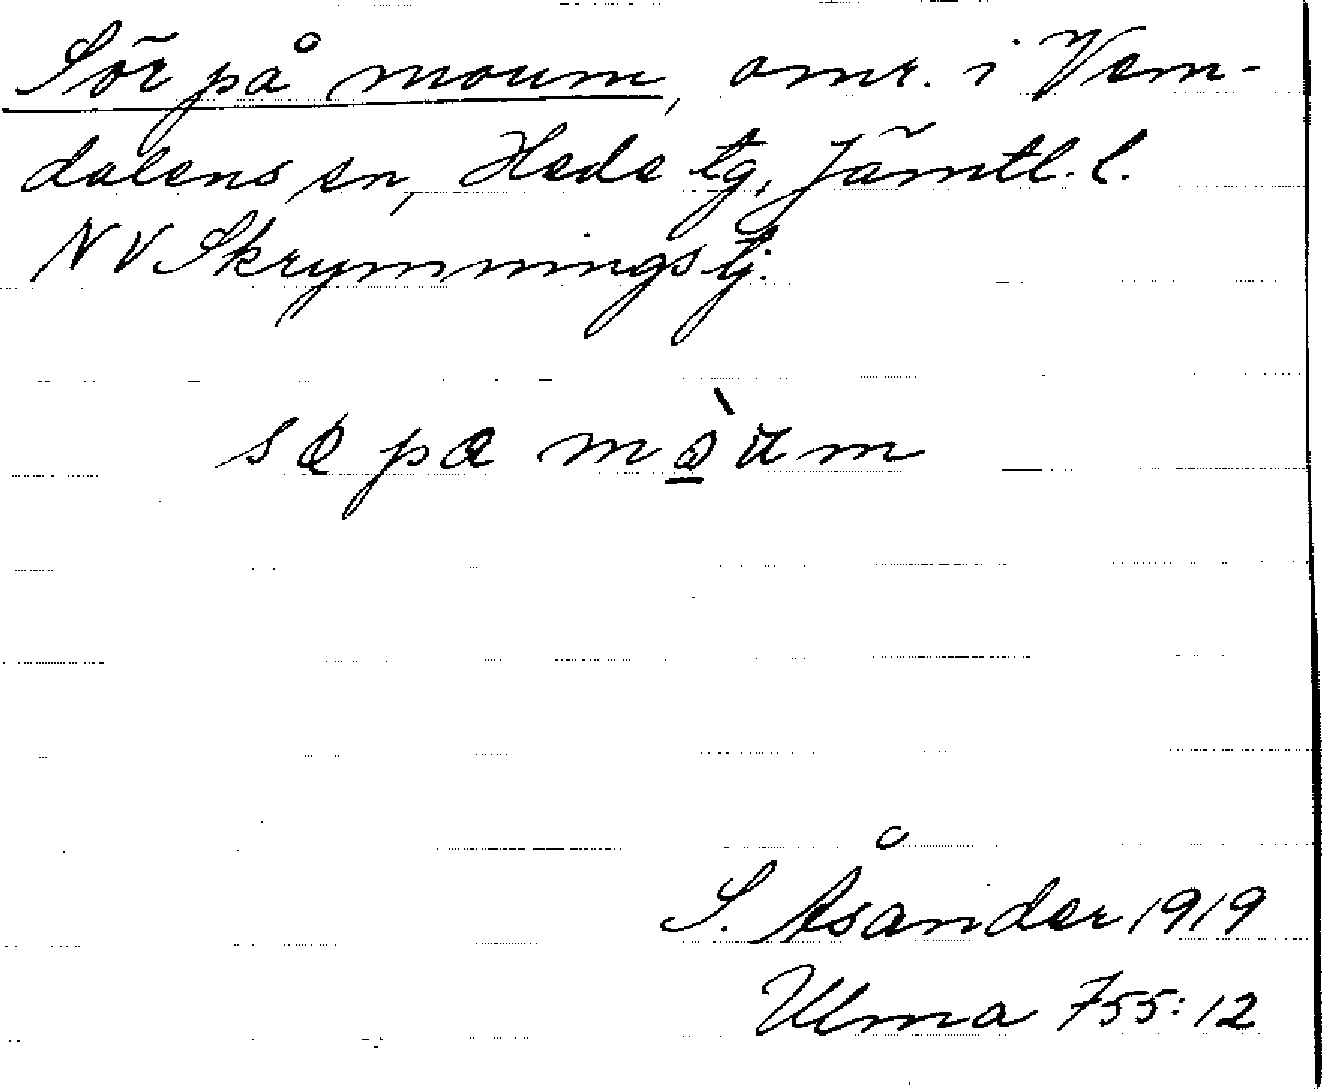 Sör på moum, omr. i Vem-
dalens sn, Hede tg, Jämtl. l.
NV Skrymmingstj.
S. Åsander 1919
Ulma 755:12